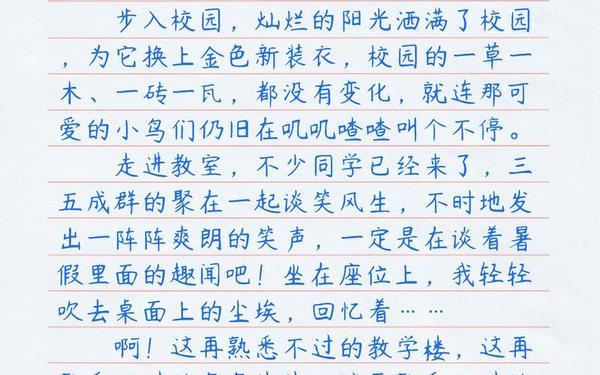 步入校园，灿烂的阳光洒满了校园
，为它换上金色新装衣，校园的一草一
木、一砖一瓦，都没有变化，就连那可
爱的小鸟们仍旧在叽叽喳喳叫个不停。
走进教室，不少同学已经来了，三
五成群的聚在一起谈笑风生，不时地发
出一阵阵爽朗的笑声，一定是在谈着暑
假里面的趣闻吧！坐在座位上，我轻轻
吹去桌面上的尘埃，回忆着……
啊！这再熟悉不过的教学楼，这再